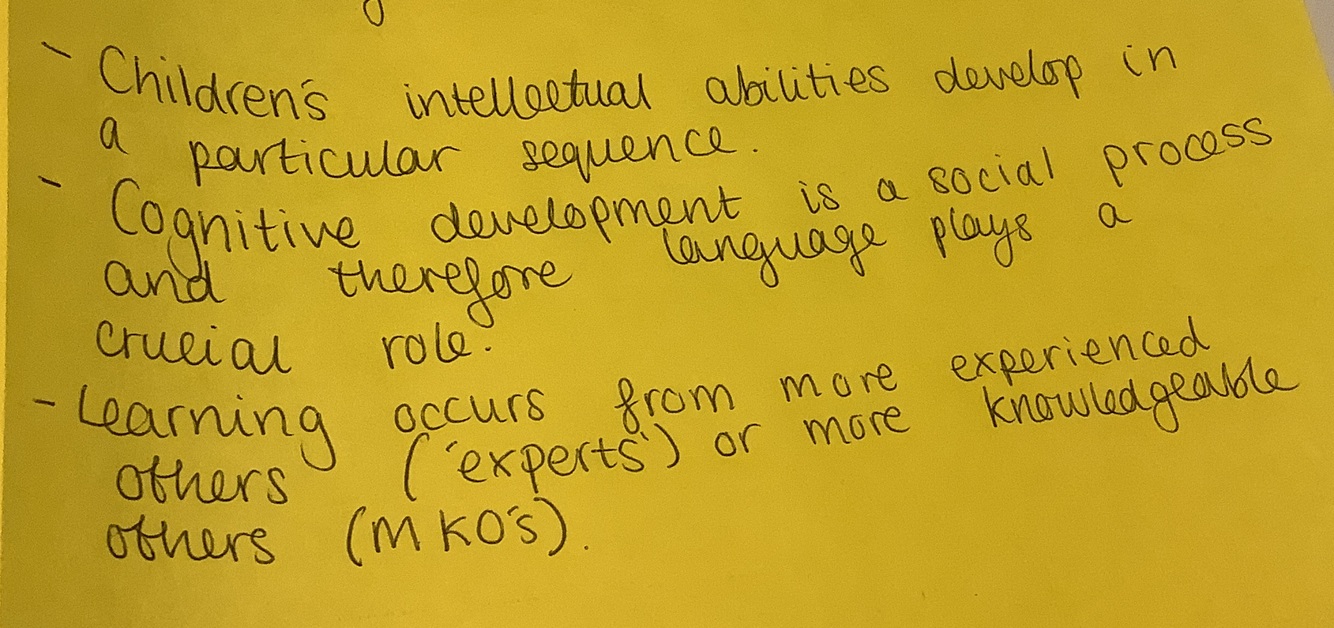 - Children's intellectual abilities develop in
a particular sequence.
- Cognitive development is a social process
and therefore language plays a
crucial role.
- Learning occurs from more experienced
others ('experts') or more knowledgeable
others (MKO's).